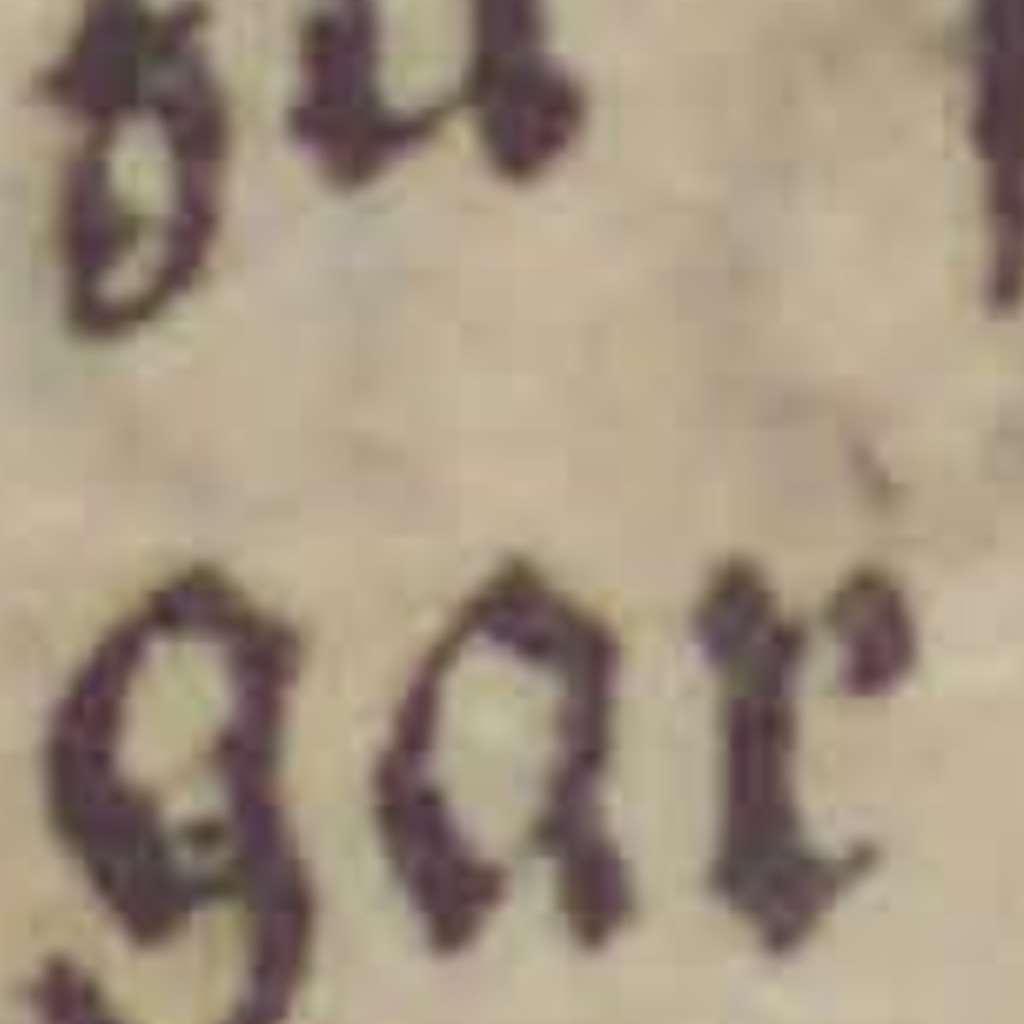 zu
gar